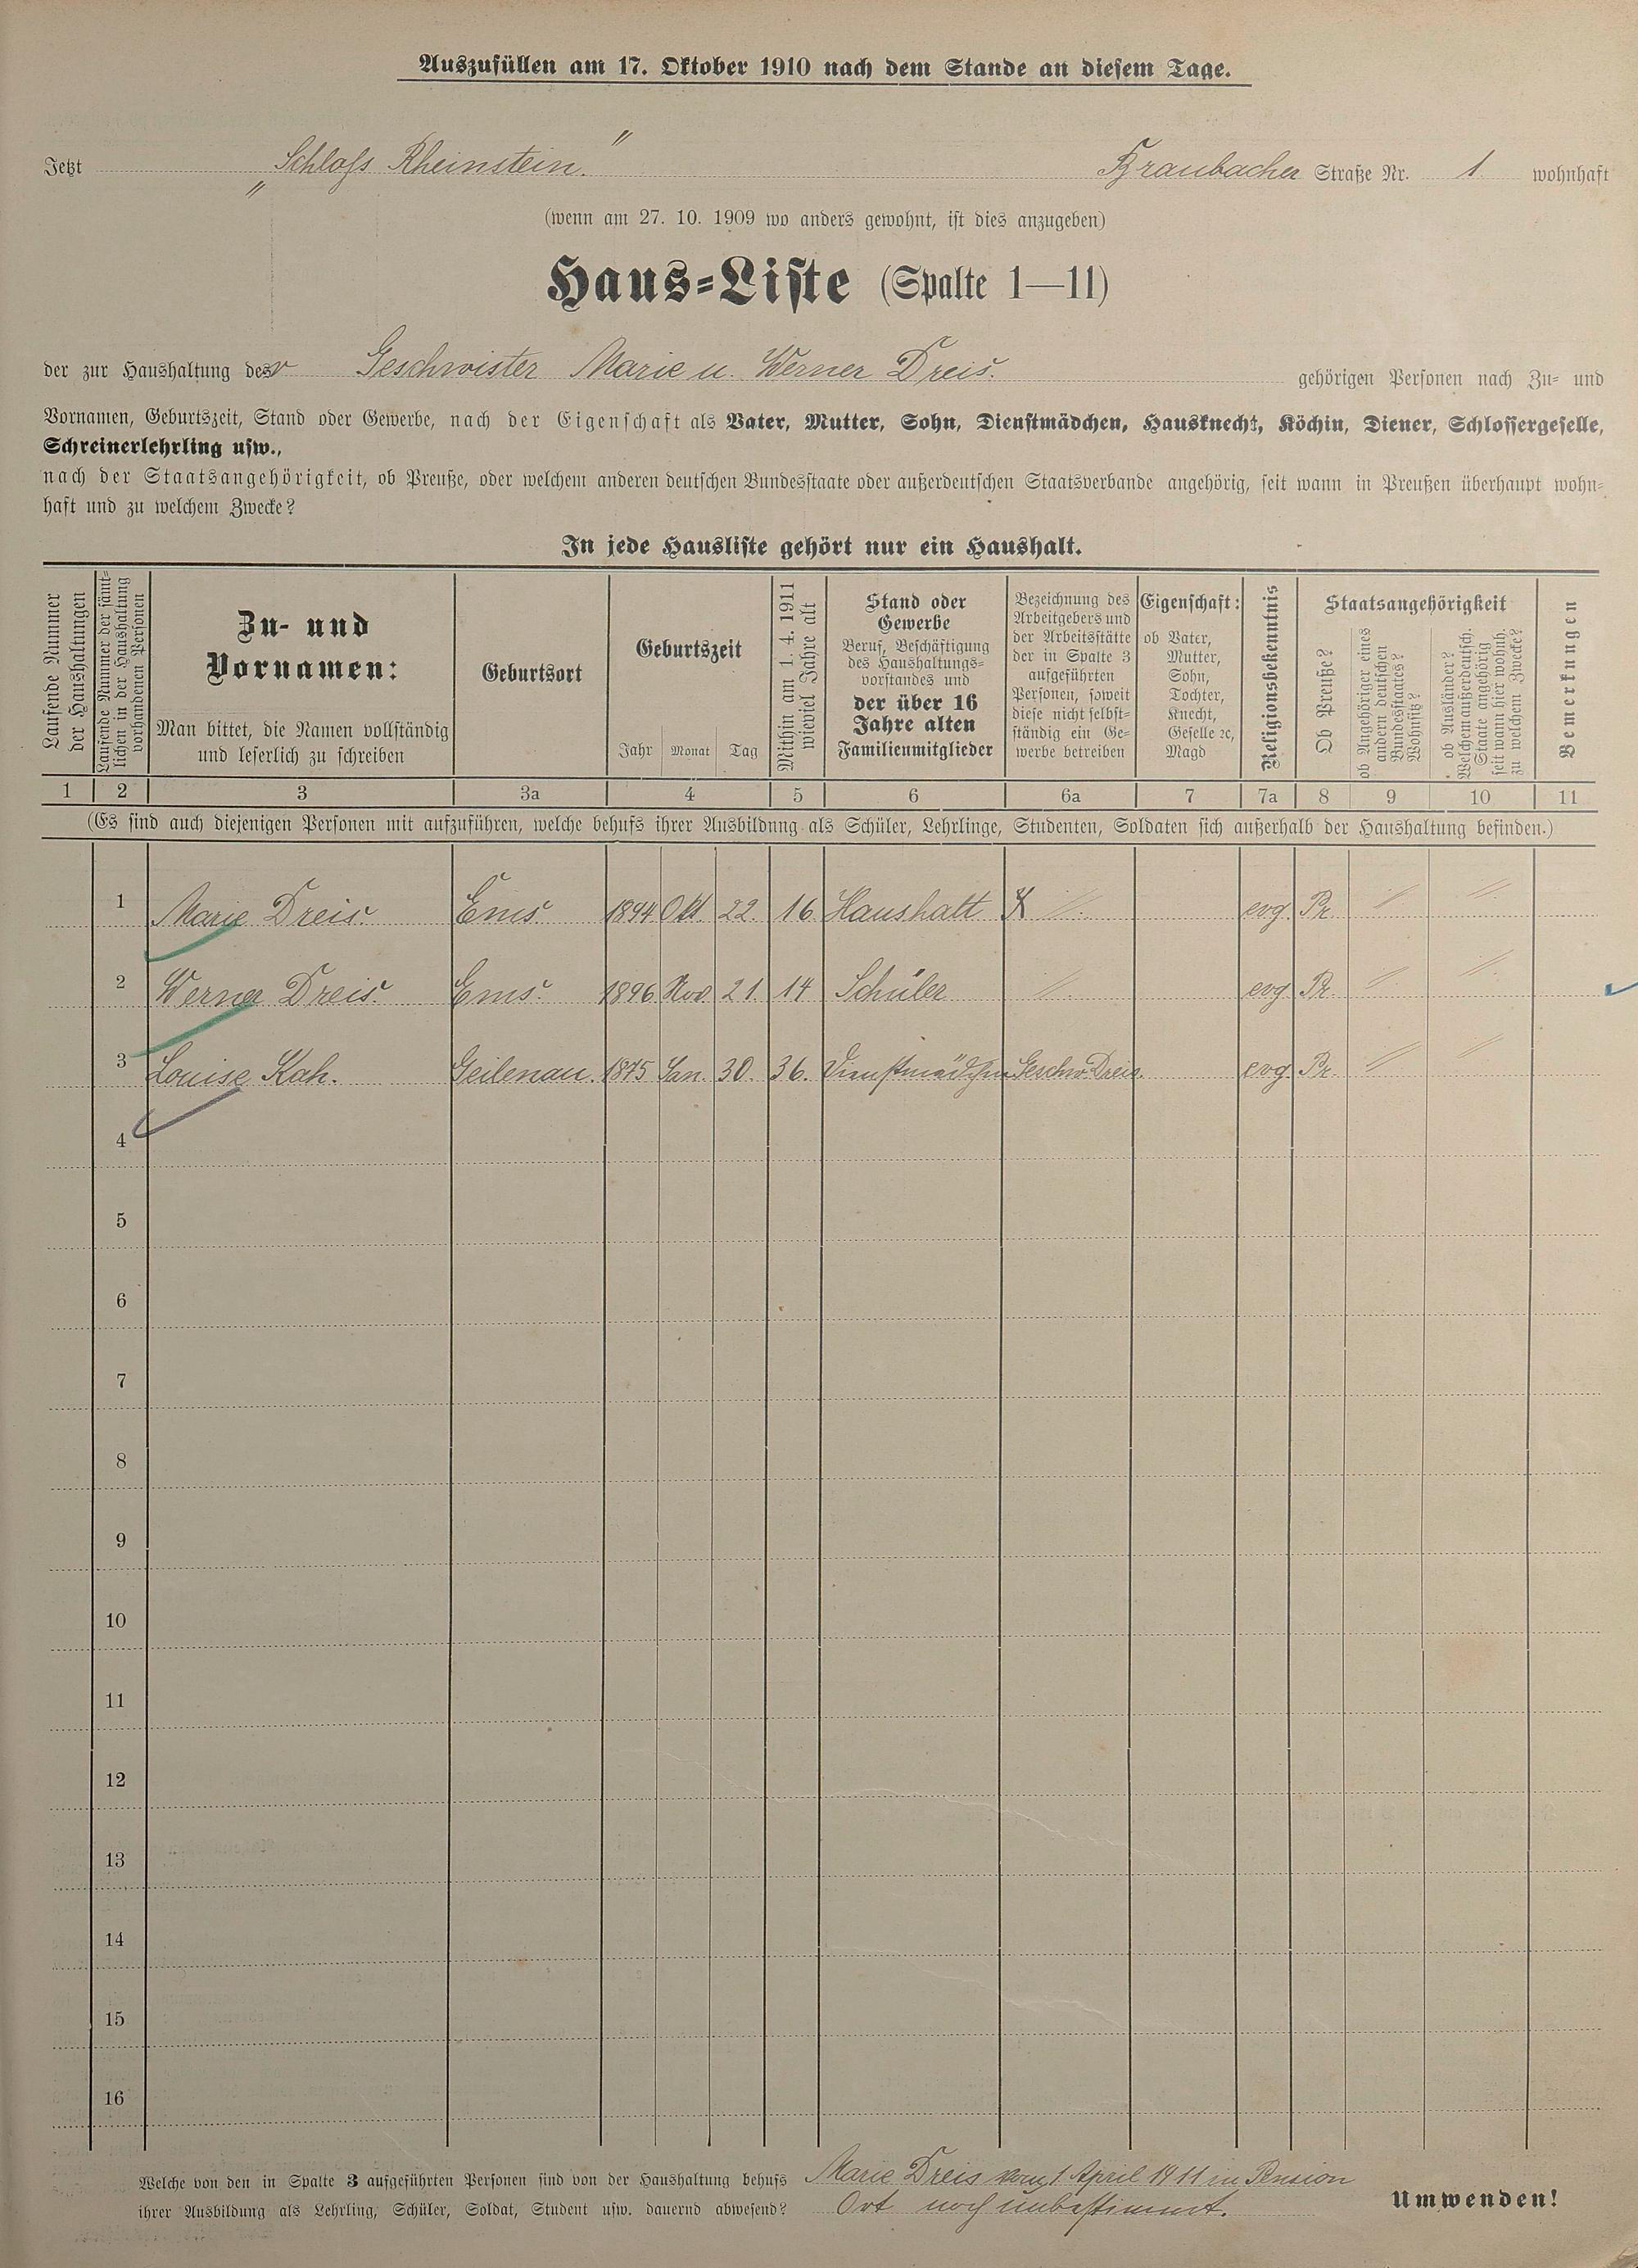 Auszufüllen am 17. Oktober 1910 nach dem Stande an diesem Tage.
Jetzt „Schloß Rheinstein." Braubacher Straße Nr. 1 wohnhaft
(wenn am 27. 10. 1909 wo anders gewohnt, ist dies anzugeben)
Haus-Liste (Spalte 1—11)
der zur Haushaltung der Geschwister Marie u. Werner Dreis. gehörigen Personen nach Zu- und
Vornamen, Geburtszeit, Stand oder Gewerbe, nach der Eigenschaft als Vater, Mutter, Sohn, Dienstmädchen, Hausknecht, Köchin, Diener, Schlossergeselle,
Schreinerlehrling usw.,
nach der Staatsangehörigkeit, ob Preuße, oder welchem anderen deutschen Bundesstaate oder außerdeutschen Staatsverbande angehörig, seit wann in Preußen überhaupt wohn-
haft und zu welchem Zwecke?
In jede Hausliste gehört nur ein Haushalt.
Laufende Nummer
der Haushaltungen
Laufende Nummer der sämt-
lichen in der Haushaltung
vorhandenen Personen
Zu- und
Vornamen:
Man bittet, die Namen vollständig
und leserlich zu schreiben
Geburtsort
Geburtszeit
Jahr Monat Tag
Mithin am 1. 4. 1911
wieviel Jahre alt
Stand oder
Gewerbe
Beruf, Beschäftigung
des Haushaltungs-
vorstandes und
der über 16
Jahre alten
Familienmitglieder
Bezeichnung des
Arbeitgebers und
der Arbeitsstätte
der in Spalte 3
aufgeführten
Personen, soweit
diese nicht selbst-
ständig ein Ge-
werbe betreiben
Eigenschaft:
ob Vater,
Mutter,
Sohn,
Tochter,
Knecht,
Geselle ꝛc,
Magd
Religionsbekenntnis
Staatsangehörigkeit
Ob Preuße?
ob Angehöriger eines
andern deutschen
Bundesstaates?
Wohnsitz?
ob Ausländer?
Welchem außerdeutsch.
Staate angehörig
seit wann hier wohnh.
zu welchem Zwecke?
Bemerkungen
1 2 3 3a 4 5 6 6a 7 7a 8 9 10 11
(Es sind auch diejenigen Personen mit aufzuführen, welche behufs ihrer Ausbildung als Schüler, Lehrlinge, Studenten, Soldaten sich außerhalb der Haushaltung befinden.)
1 Marie Dreis. Ems. 1894 Okt. 22. 16. Haushalt // evg. Pr. // //
2 Werner Dreis. Ems. 1896 Nov. 21. 14 Schüler // evg. Pr. // //
3 Louise Kah. Geilenau. 1875 Jan. 30. 36. Dienstmädchen Geschw. Dreis. evg. Pr. // //
4
5
6
7
8
9
10
11
12
13
14
15
16
Welche von den in Spalte 3 aufgeführten Personen sind von der Haushaltung behufs Marie Dreis vom 1 April 1911 in Pension
ihrer Ausbildung als Lehrling, Schüler, Soldat, Student usw. dauernd abwesend? Ort noch unbestimmt.
Umwenden!